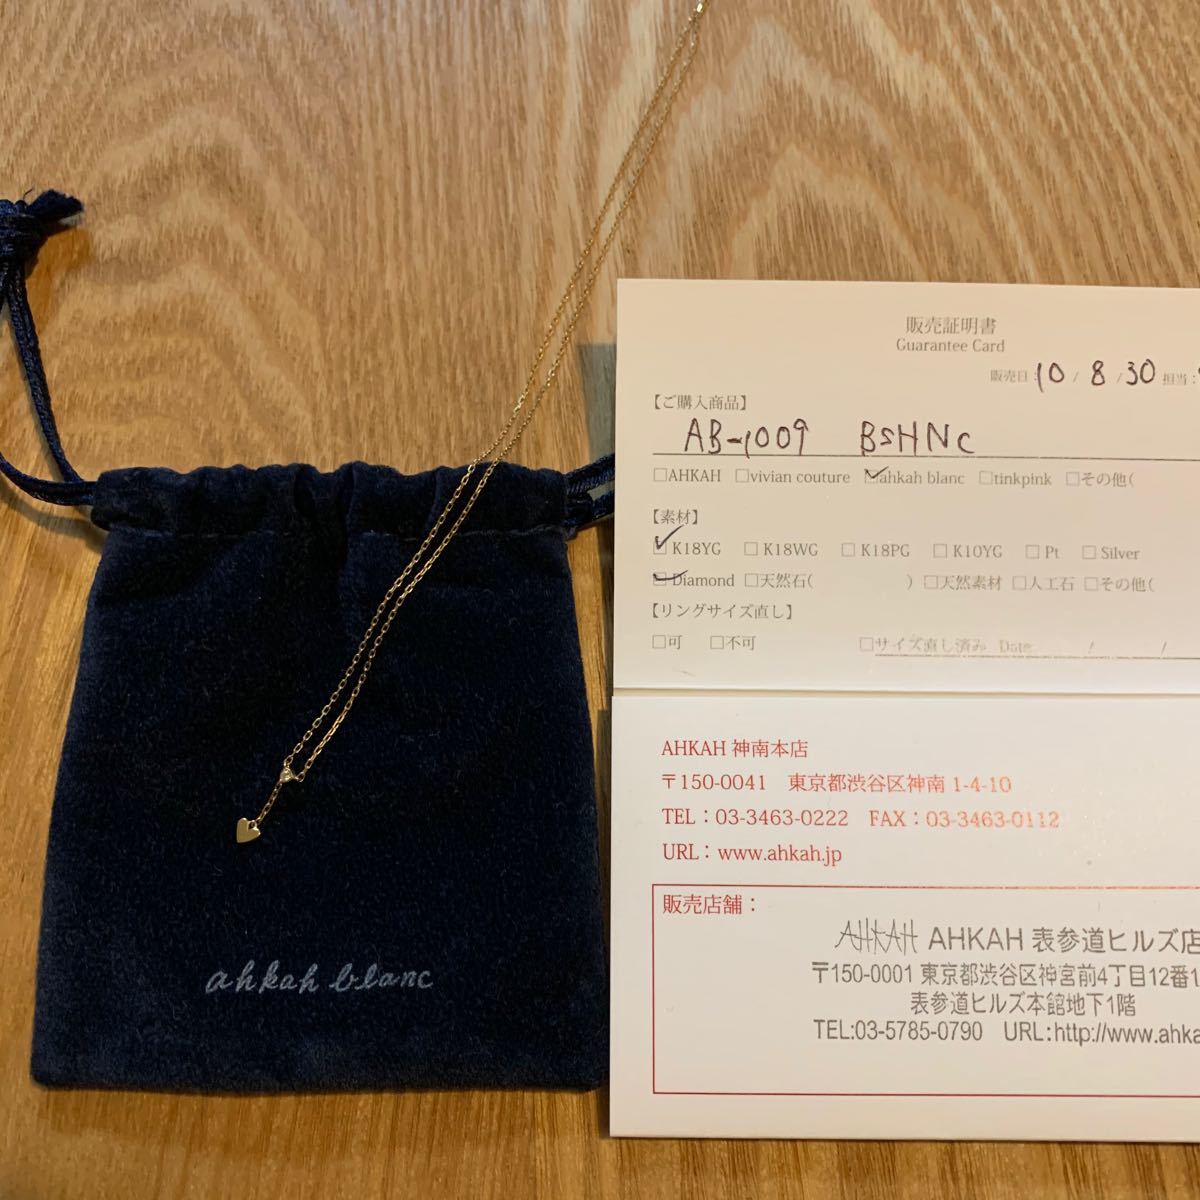 販売証明書
Guarantee Card
販売日：10 / 8 / 30 担当：
【ご購入商品】
AB-1009 BSHNC
□AHKAH □vivian couture □ahkah blanc □tinkpink □その他(
【素材】
□K18YG □K18WG □K18PG □K10YG □Pt □Silver
□Diamond □天然石( ) □天然素材 □人工石 □その他(
【リングサイズ直し】
□可 □不可 □サイズ直し済み Date / /
AHKAH 神南本店
〒150-0041 東京都渋谷区神南 1-4-10
TEL：03-3463-0222 FAX：03-3463-0112
URL：www.ahkah.jp
販売店舗：
AHKAH AHKAH 表参道ヒルズ店
〒150-0001 東京都渋谷区神宮前4丁目12番1
表参道ヒルズ本館地下1階
TEL:03-5785-0790 URL:http://www.ahka
ahkah blanc